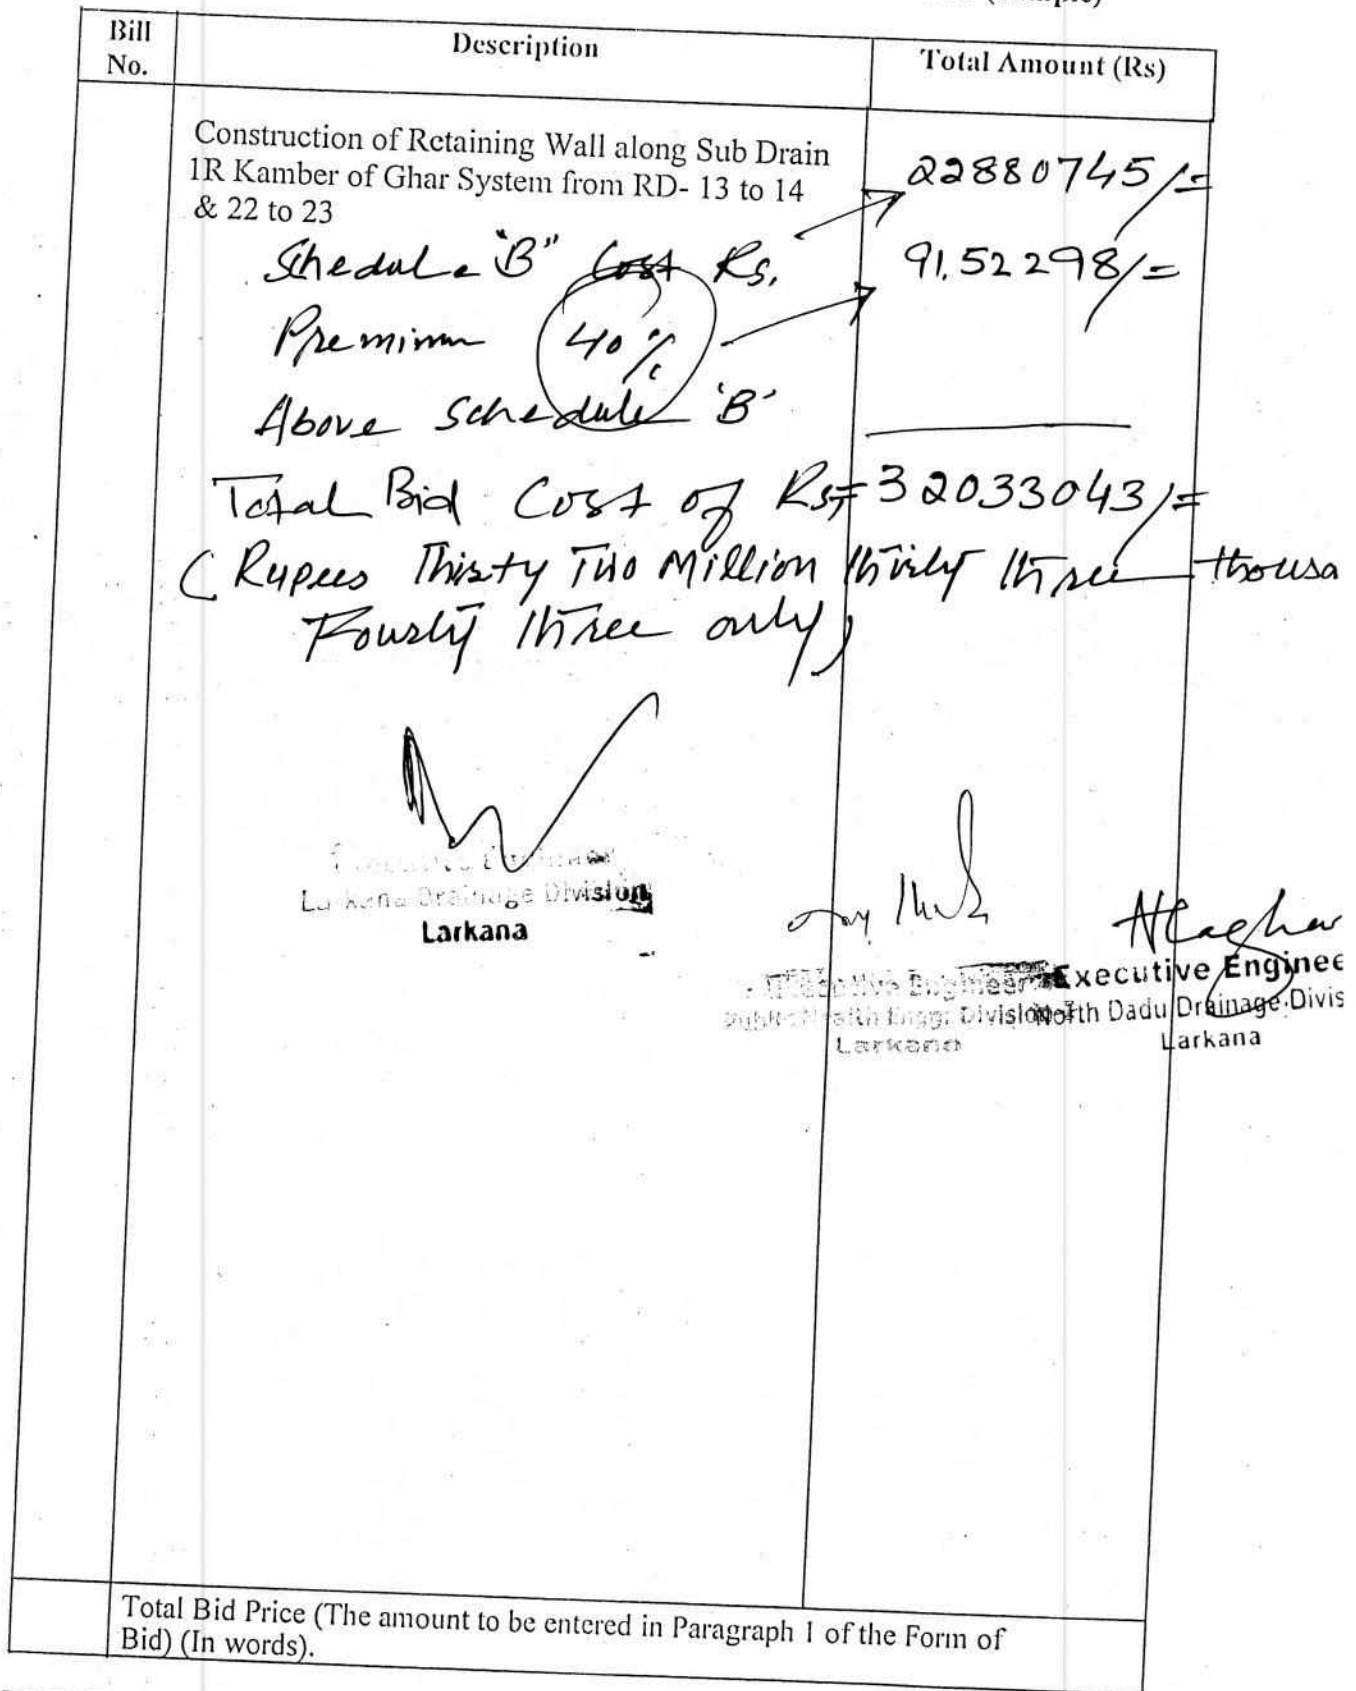 Bill No.
Description
Total Amount (Rs)
Construction of Retaining Wall along Sub Drain
1R Kamber of Ghar System from RD- 13 to 14
& 22 to 23
22880745/=
Schedule "B" Cost Rs.
91,52298/=
Premium 40%
Above Schedule 'B'
Total Bid Cost of Rs= 32033043/=
( Rupees Thirty Two Million thirty three thousa
Fourty three only)
Larkana Drainage Division
Larkana
Executive Engineer
Division-I
Larkana
Executive Enginee
North Dadu Drainage Divis
Larkana
Total Bid Price (The amount to be entered in Paragraph 1 of the Form of
Bid) (In words).